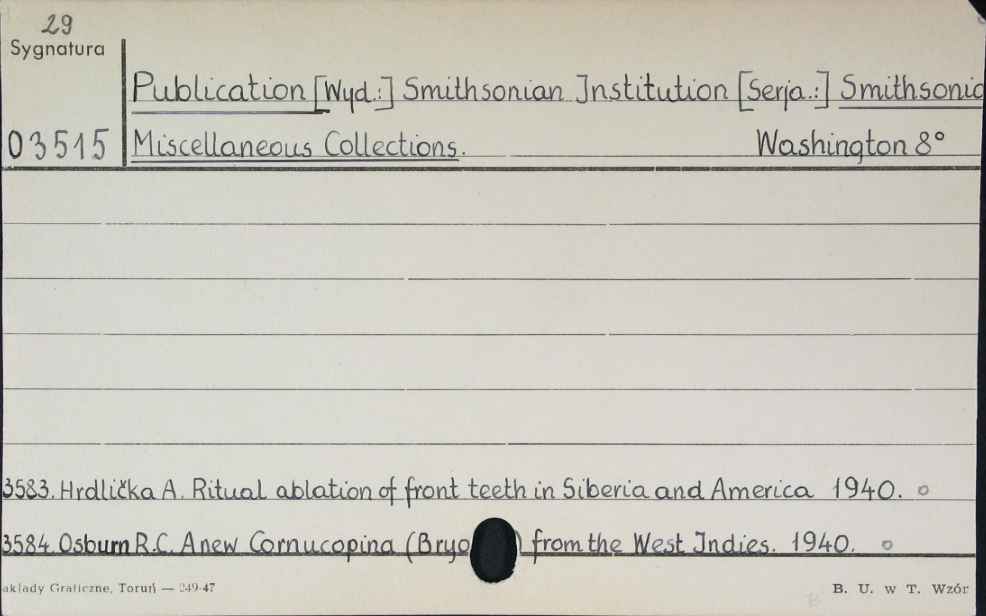 29
Sygnatura
Publication [Wyd.:] Smithsonian Institution [Serja.:] Smithsonic
03515 Miscellaneous Collections. Washington 8°
3583. Hrdlička A. Ritual ablation of front teeth in Siberia and America 1940. o
3584. Osburn R.C. A new Cornucopina (Bryo ) from the West Indies. 1940. o
akłady Graficzne, Toruń — 249-47 B. U. w T. Wzór